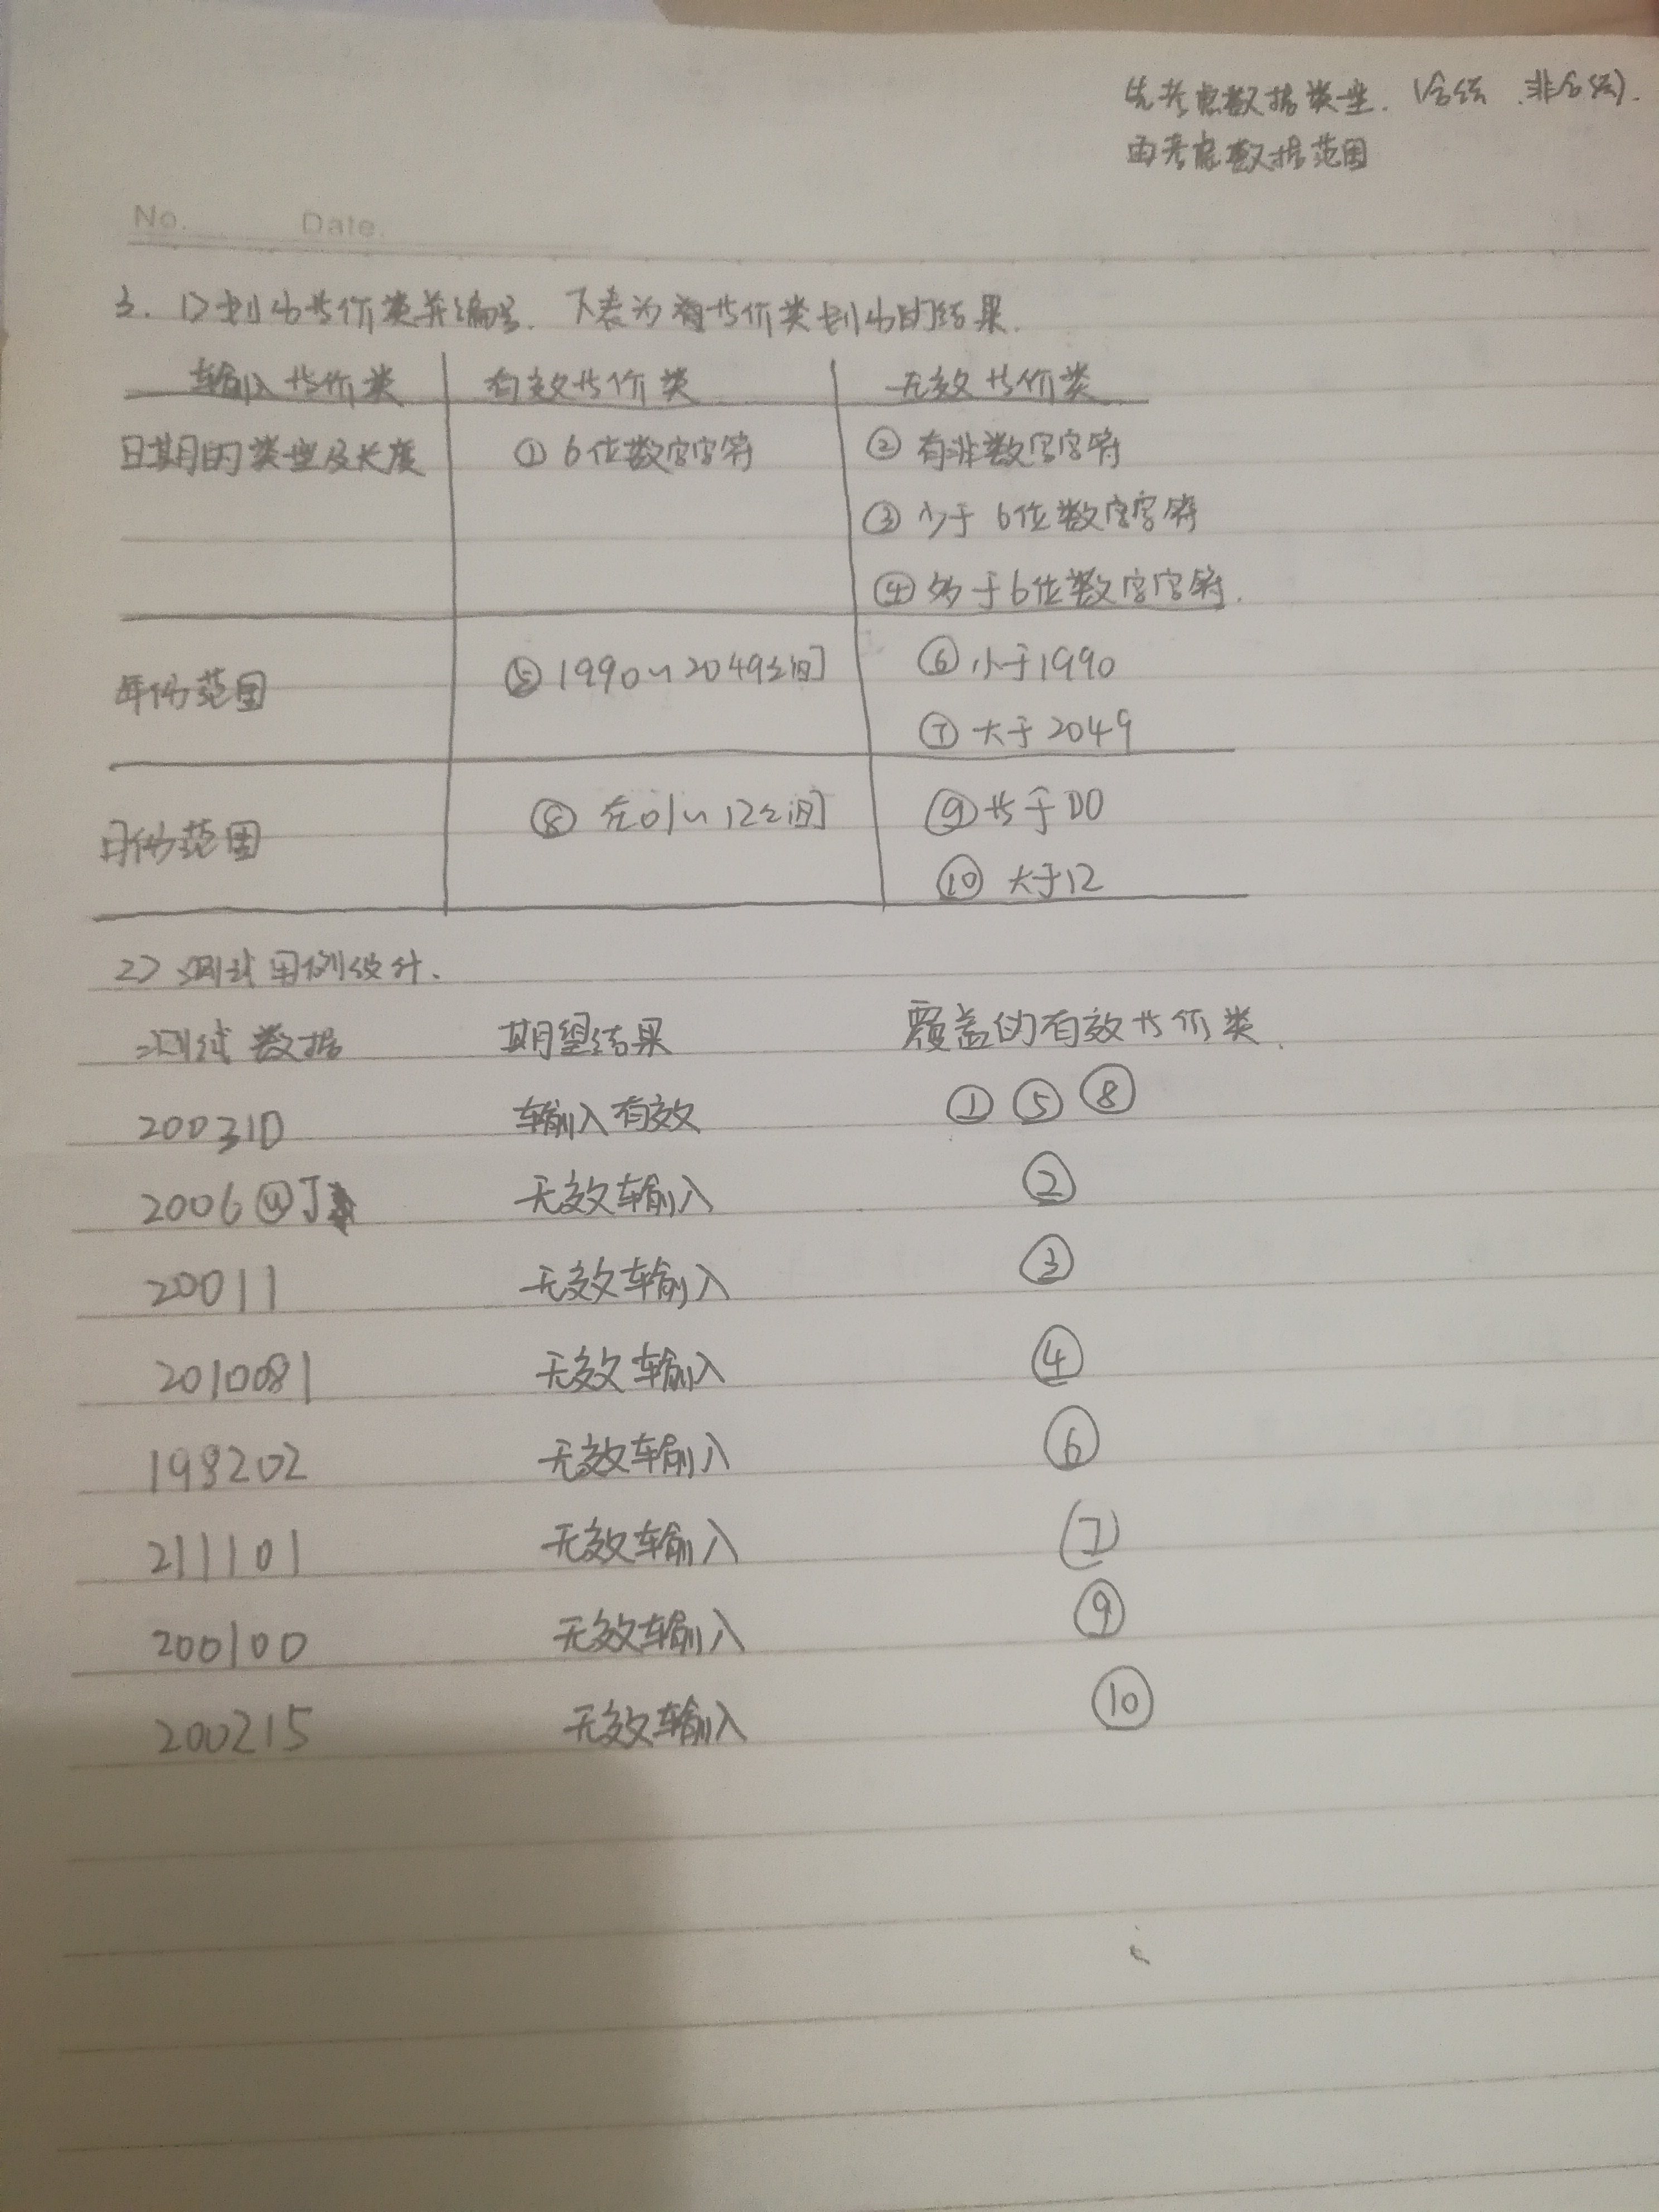 先考虑数据类型.(合法、非合法).
再考虑数据范围
No. Date.
3. 1>划分等价类并编号. 下表为等价类划分的结果.
输入等价类 有效等价类 无效等价类
日期的类型及长度 ① 6位数字字符 ② 有非数字字符
③ 少于6位数字字符
④ 多于6位数字字符.
年份范围 ⑤ 1990~2049之间 ⑥ 小于1990
⑦ 大于2049
月份范围 ⑧ 在01~12之间 ⑨ 等于00
⑩ 大于12
2> 测试用例设计.
测试数据 期望结果 覆盖的有效等价类.
200310 输入有效 ① ⑤ ⑧
2006@J 无效输入 ②
20011 无效输入 ③
2010081 无效输入 ④
198202 无效输入 ⑥
211101 无效输入 ⑦
200100 无效输入 ⑨
200215 无效输入 ⑩